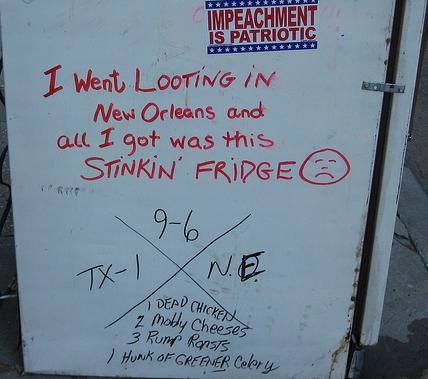 IMPEACHMENT
IS PATRIOTIC
I Went LOOTING IN
New Orleans and
all I got was this
STINKIN' FRIDGE
9-6
TX-1 N.E.
1 DEAD CHICKEN
2 Moldy Cheeses
3 Rump Roasts
1 HUNK OF GREENER Celery